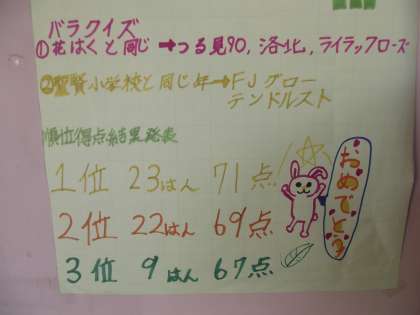 バラクイズ
①花はくと同じ→つる見90, 洛北, ライラックローズ
②聖賢小学校と同じ年→FJグロー
テンドルスト
順位得点結果発表
1位 23はん 71点
2位 22はん 69点
3位 9はん 67点
おめでとう